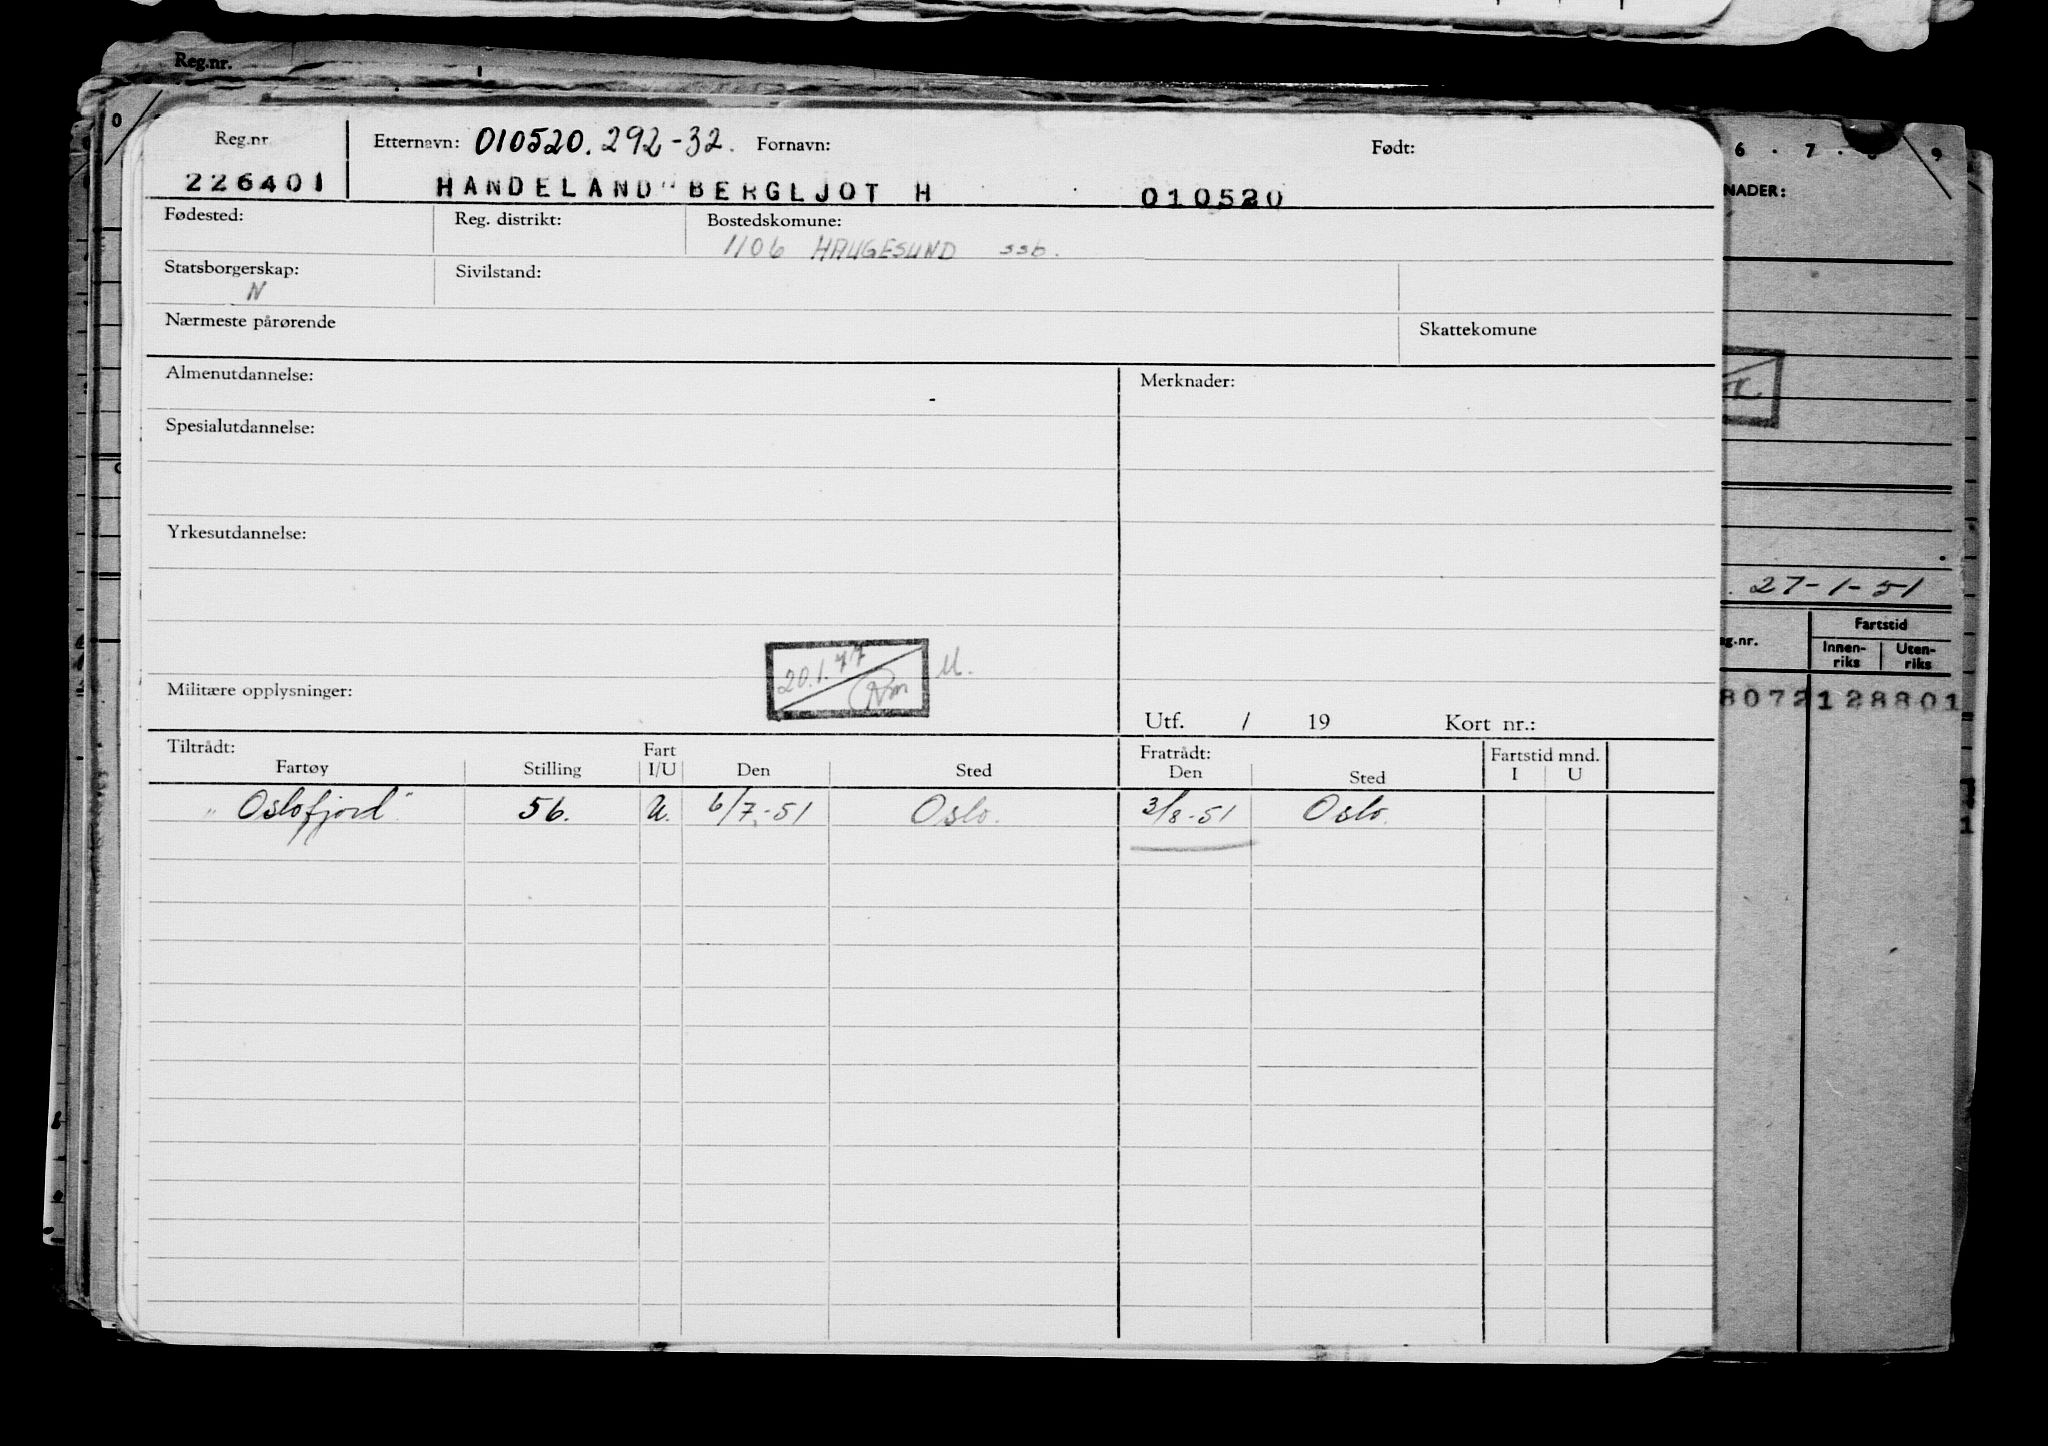 Reg.nr.
0
6 . 7 . 8 9
NADER:
Reg.nr
Etternavn: 010520.292-32. Fornavn: Født:
226401 HANDELAND BERGLJOT H 010520
Fødested: Reg. distrikt: Bostedskomune:
1106 HAUGESUND ssb.
Statsborgerskap: Sivilstand:
N
Nærmeste pårørende Skattekomune
Almenutdannelse: Merknader:
Spesialutdannelse:
Yrkesutdannelse:
27-1-51
20.1.77 M.
Militære opplysninger:
Utf. / 19 Kort nr.:
ag.nr. Fartstid
Innen-riks Uten-riks
8072 128801
Tiltrådt: Fart Fratrådt: Fartstid mnd.
Fartøy Stilling I/U Den Sted Den Sted I U
"Oslofjord" 56. U. 6/7.-51 Oslo. 3/8-51 Oslo.